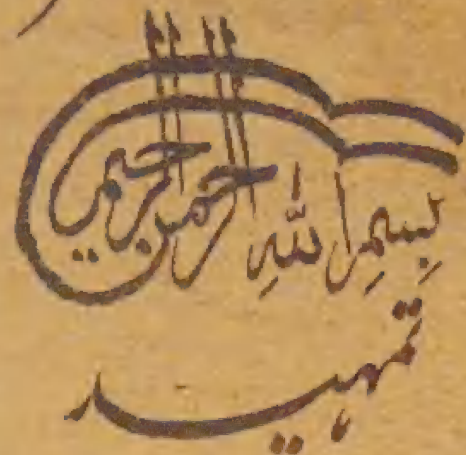 بِسْمِ اللّٰهِ الرحمن الرحیم
تمہید